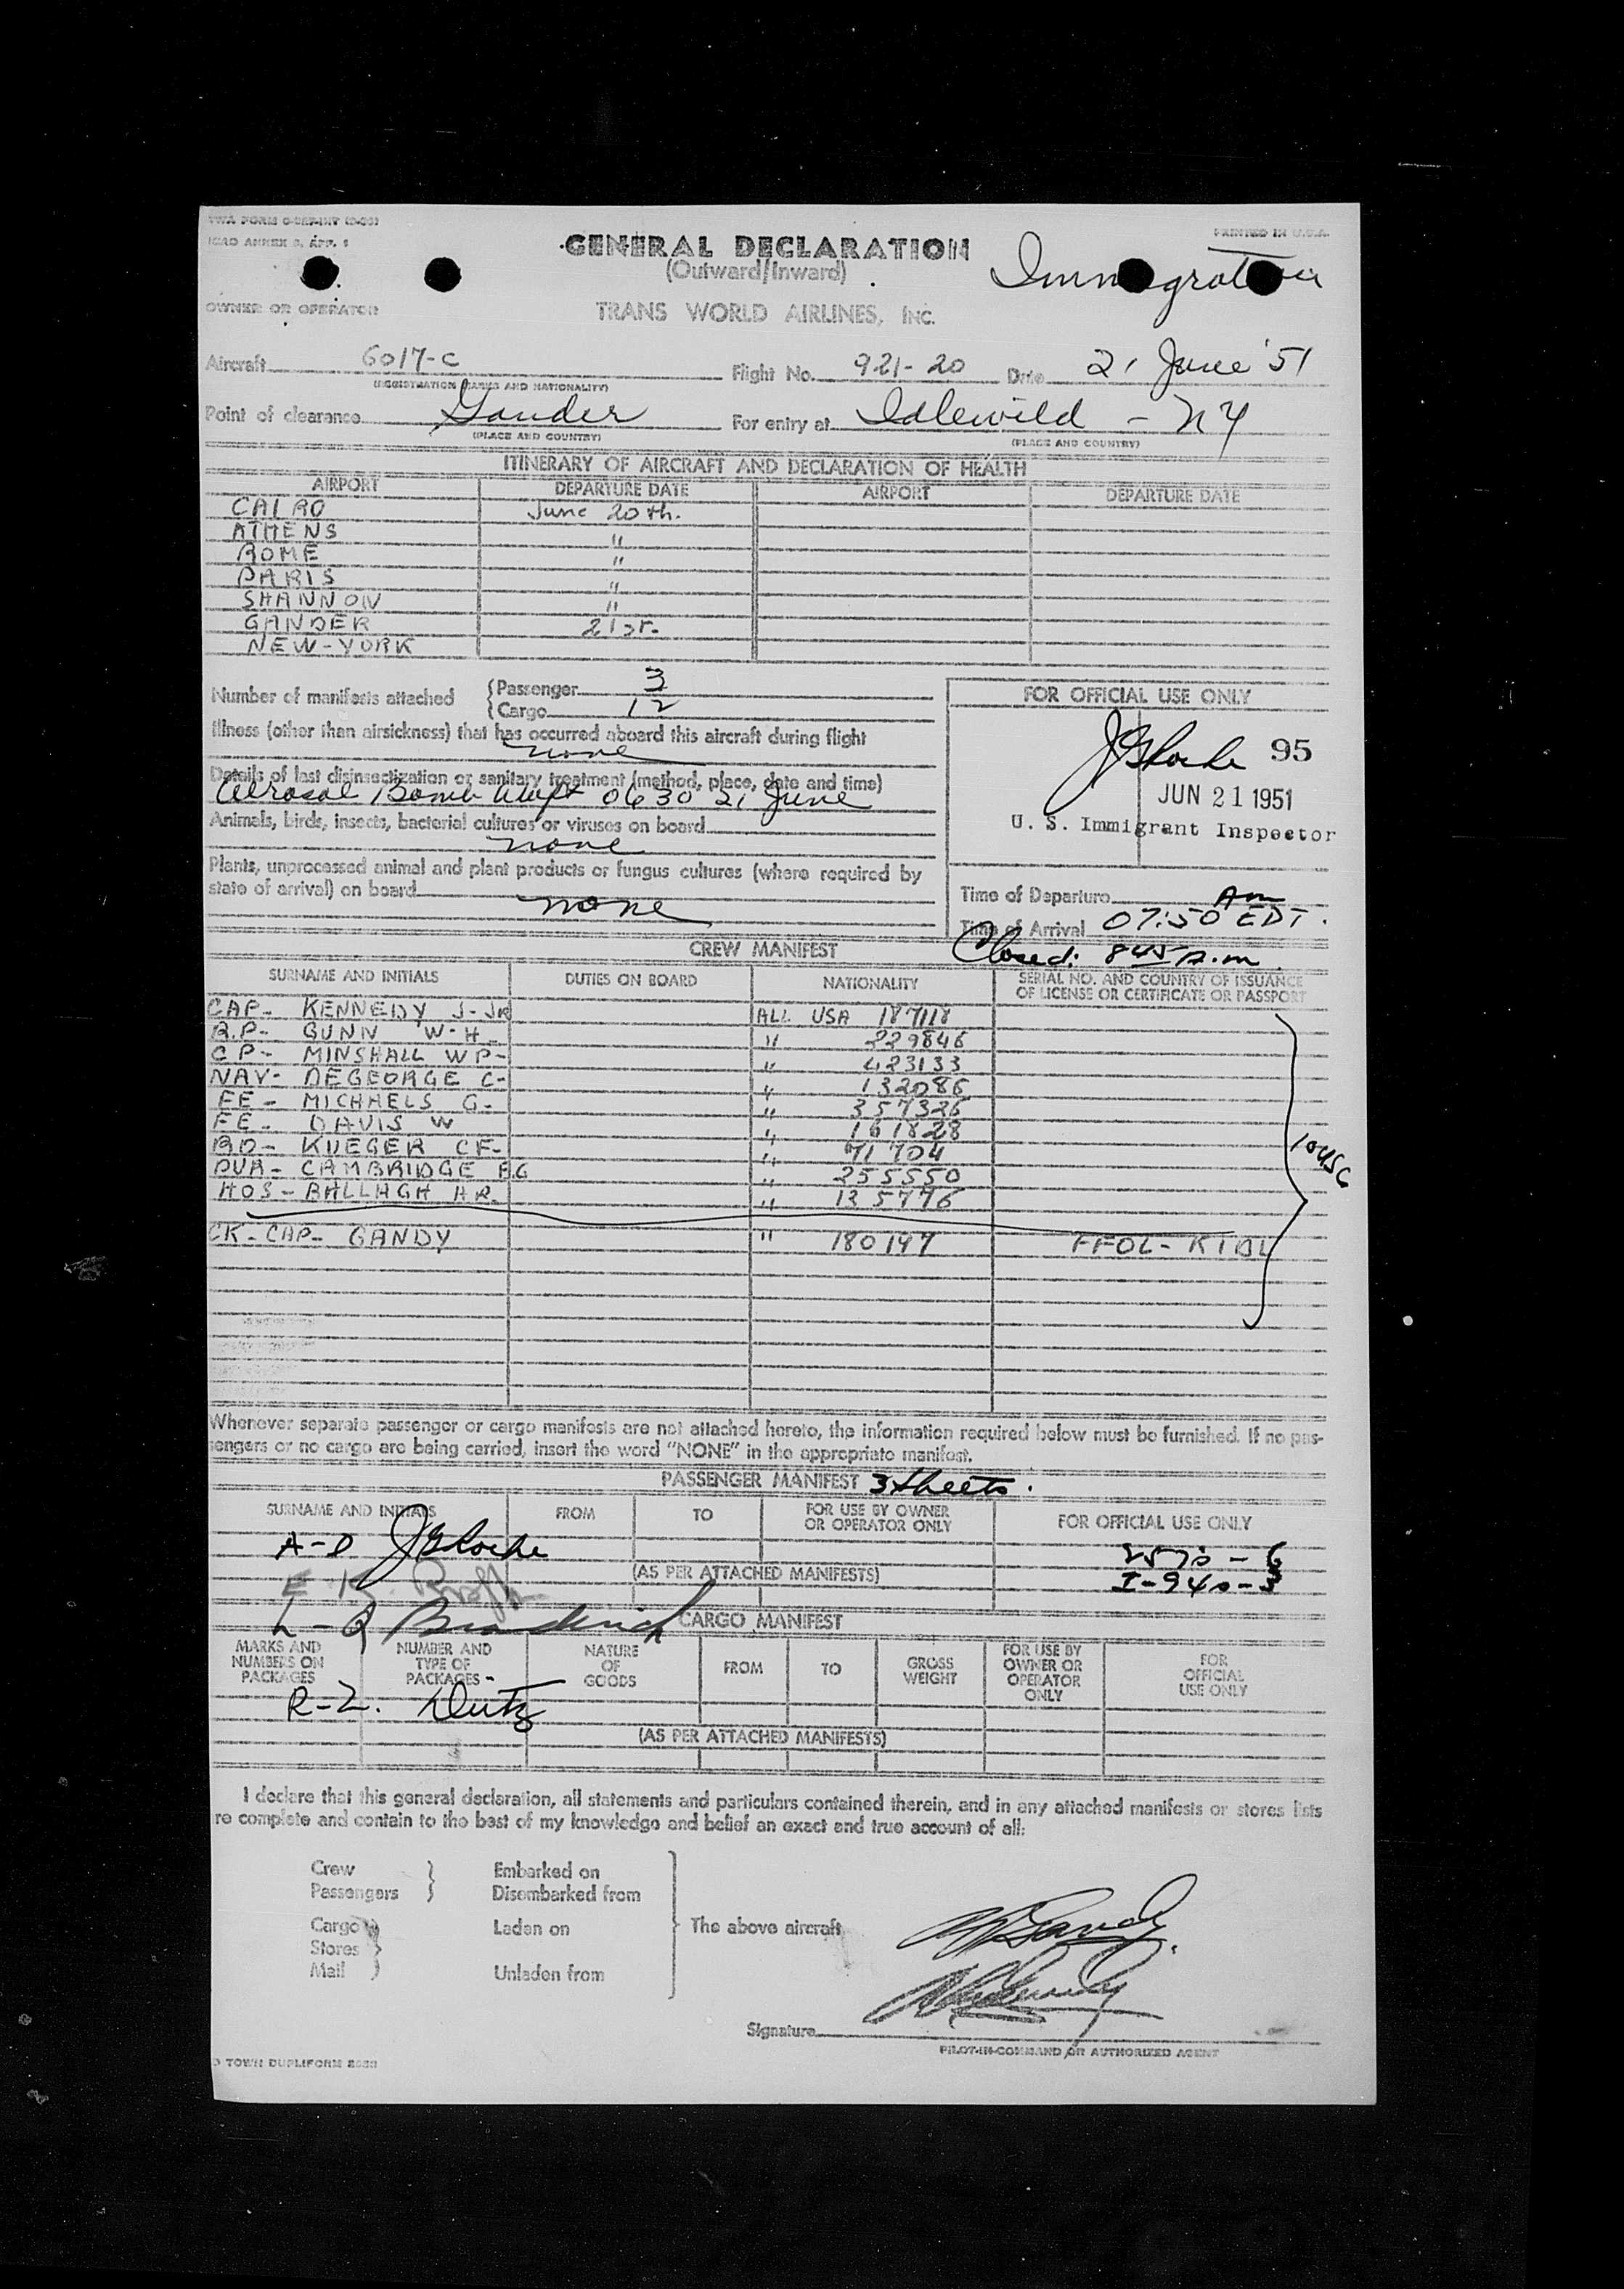 TWA FORM
ICAO ANNEX 9, APP. 1
PRINTED IN U.S.A.
GENERAL DECLARATION
(Outward/Inward)
Immigration
OWNER OR OPERATOR
TRANS WORLD AIRLINES, INC.
Aircraft 6017-C Flight No. 921-20 Date 21 June '51
(REGISTRATION MARKS AND NATIONALITY)
Point of clearance Gander For entry at Idlewild - NY
(PLACE AND COUNTRY) (PLACE AND COUNTRY)
ITINERARY OF AIRCRAFT AND DECLARATION OF HEALTH
AIRPORT DEPARTURE DATE AIRPORT DEPARTURE DATE
CAIRO June 20th.
ATHENS "
ROME "
PARIS "
SHANNON "
GANDER 21st.
NEW-YORK
Number of manifests attached {Passenger 3
{Cargo 12
Illness (other than airsickness) that has occurred aboard this aircraft during flight
none
Details of last disinsectization or sanitary treatment (method, place, date and time)
Aerosol Bomb 0630 21 June
Animals, birds, insects, bacterial cultures or viruses on board
none
Plants, unprocessed animal and plant products or fungus cultures (where required by
state of arrival) on board
none
FOR OFFICIAL USE ONLY
95
JUN 21 1951
U. S. Immigrant Inspector
Time of Departure
Time of Arrival 07:50 Am EDT.
Closed: 845 A.m.
CREW MANIFEST
SURNAME AND INITIALS DUTIES ON BOARD NATIONALITY SERIAL NO. AND COUNTRY OF ISSUANCE
OF LICENSE OR CERTIFICATE OR PASSPORT
CAP- KENNEDY J-JR ALL USA 187118
R.P- GUNN W-H- " 229846
CP- MINSHALL WP- " 423133
NAV- DEGEORGE C- " 132086
FE- MICHAELS G- " 357326
FE- DAVIS W " 161828
RO- KUEGER CF- " 71704
PUR- CAMBRIDGE FG " 255550
HOS- BALLAGH AR. " 125776
10USC
CK-CAP- GANDY " 180197 FFOL- KIDL
Whenever separate passenger or cargo manifests are not attached hereto, the information required below must be furnished. If no pas-
sengers or no cargo are being carried, insert the word "NONE" in the appropriate manifest.
PASSENGER MANIFEST 3 sheets.
SURNAME AND INITIALS FROM TO FOR USE BY OWNER
OR OPERATOR ONLY FOR OFFICIAL USE ONLY
A-D
257s - 6
(AS PER ATTACHED MANIFESTS)
I-94s-3
E K
L-Q
CARGO MANIFEST
MARKS AND
NUMBERS ON
PACKAGES NUMBER AND
TYPE OF
PACKAGES NATURE
OF
GOODS FROM TO GROSS
WEIGHT FOR USE BY
OWNER OR
OPERATOR
ONLY FOR
OFFICIAL
USE ONLY
R-Z.
(AS PER ATTACHED MANIFESTS)
I declare that this general declaration, all statements and particulars contained therein, and in any attached manifests or stores lists
re complete and contain to the best of my knowledge and belief an exact and true account of all:
Crew } Embarked on
Passengers } Disembarked from
Cargo } Laden on The above aircraft
Stores
Mail } Unladen from
Signature
PILOT-IN-COMMAND OR AUTHORIZED AGENT
TOWN DUPLIFORM